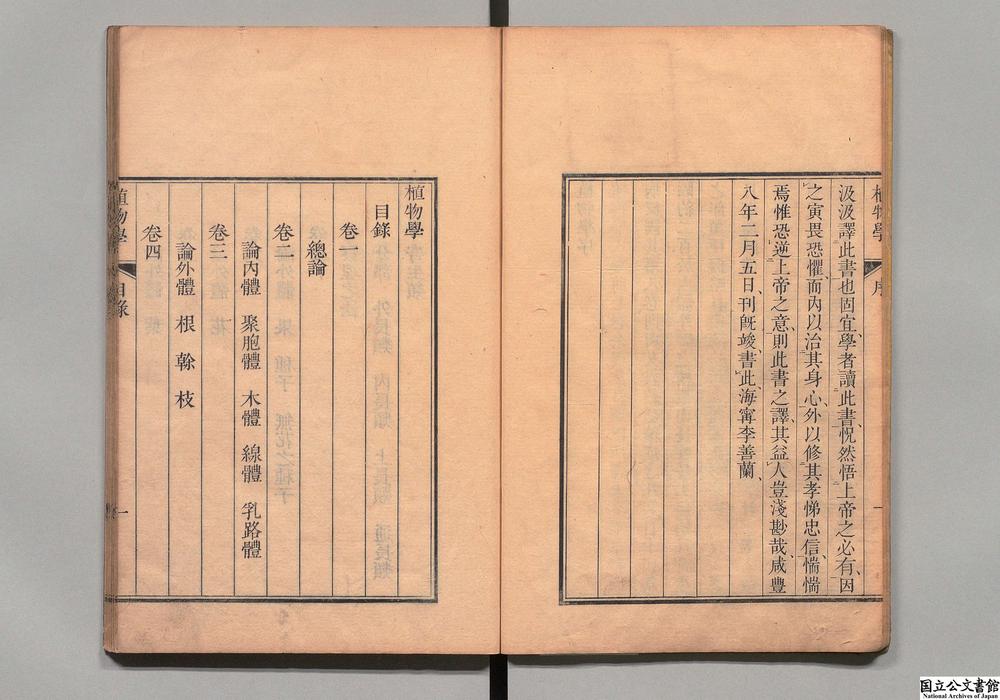 植物學 序 一
汲汲譯此書也固宜學者讀此書、怳然悟上帝之必有、因
之寅畏恐懼而內以治其身心、外以修其孝悌忠信、惴惴
焉惟恐逆上帝之意、則此書之譯、其益人豈淺尠哉、咸豐
八年二月五日、刊旣竣、書此、海甯李善蘭、
植物學
目錄
卷一
總論
卷二
論內體 聚胞體 木體 線體 乳路體
卷三
論外體 根 榦 枝
卷四
植物學 目錄 一
国立公文書館
National Archives of Japan